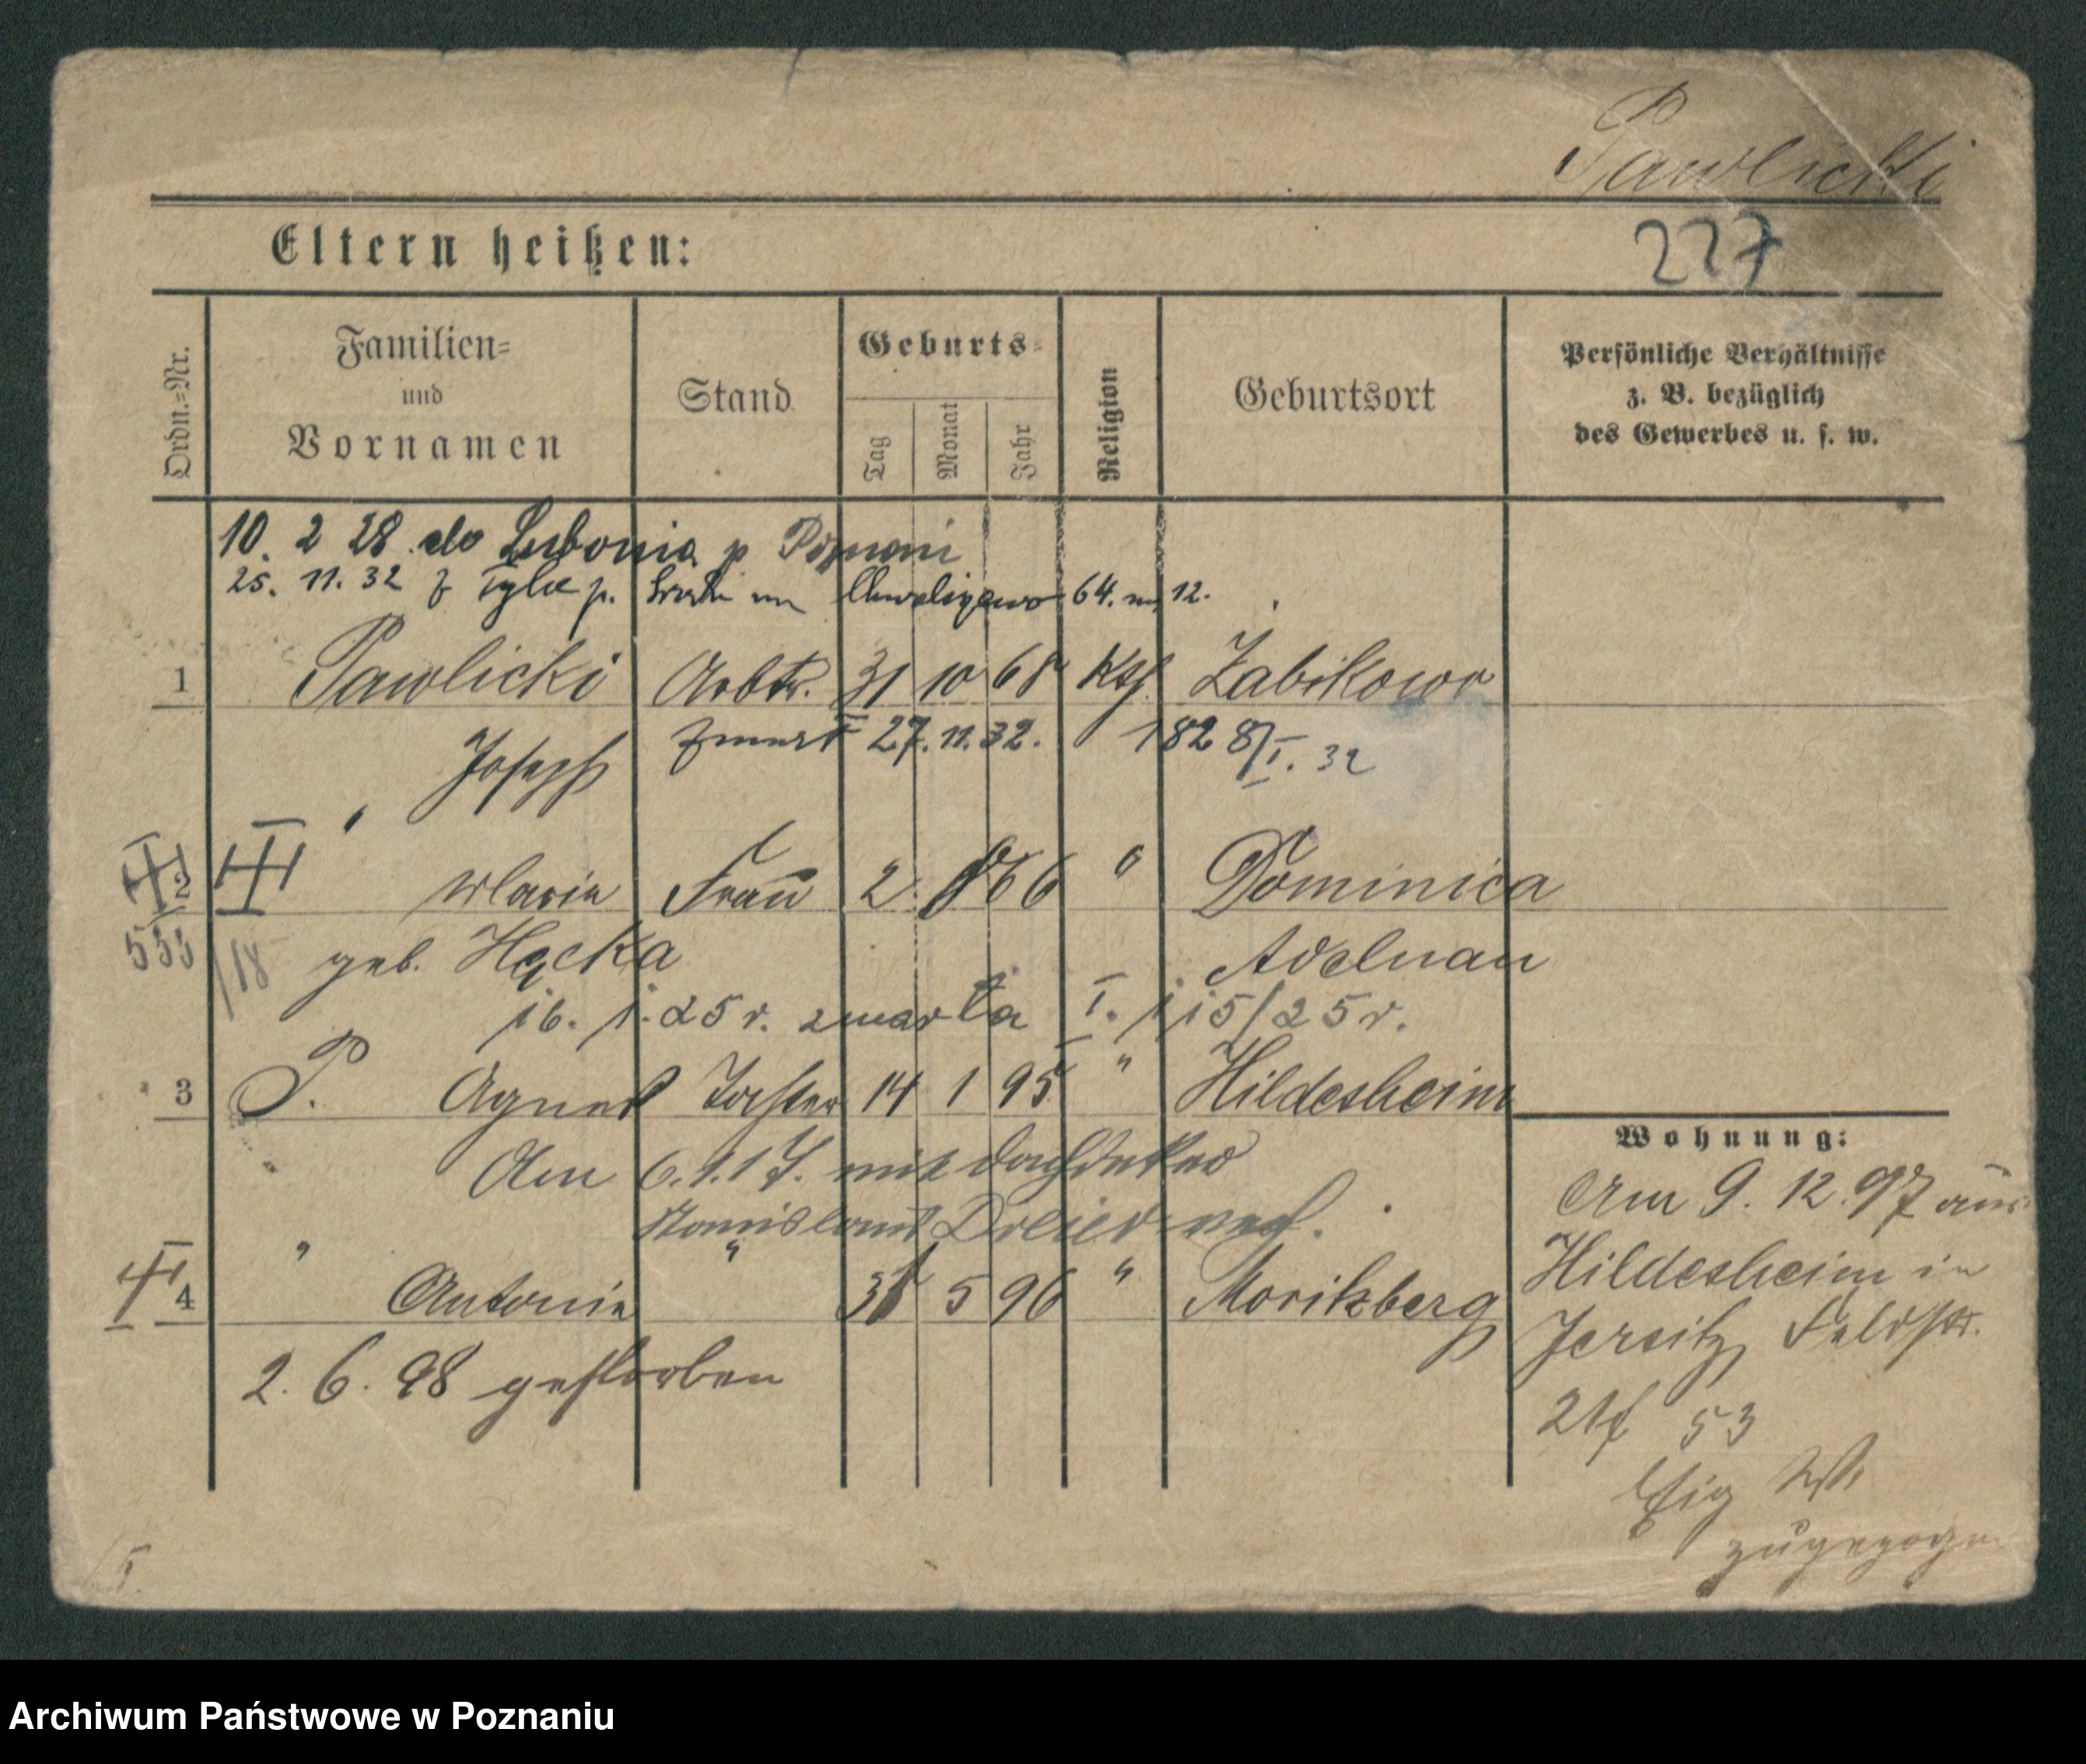 Pawlicki
Eltern heißen:
227
Ordn.-Nr.
Familien-
und
Vornamen
Stand
Geburts-
Tag
Monat
Jahr
Religion
Geburtsort
Persönliche Verhältnisse
z. B. bezüglich
des Gewerbes u. s. w.
10. 2 28 do Lubonia p Poznani
25. 11. 32 z p. 64. m 12.
1 Pawlicki Arbtr. 31 10 68 Kth. Zabikowo
Joseph zmarł 27. 11. 32. I. 32
2 " Maria Frau 2 66 " Dominica
555/18 geb. Hącka Adelnau
16. 1. 25 r. zmarła I. 115/25 r.
3 P. Agnes Tochter 14 1 95 " Hildesheim
Am 6.1.17. mit Dachdecker
Stanislaus Dreier verh.
4 " Antonie " 31 5 96 " Moritzberg
2. 6. 98 gestorben
Wohnung:
Am 9. 12. 97 aus
Hildesheim in
Jersitz Feldstr.
53
zugezogen
Archiwum Państwowe w Poznaniu